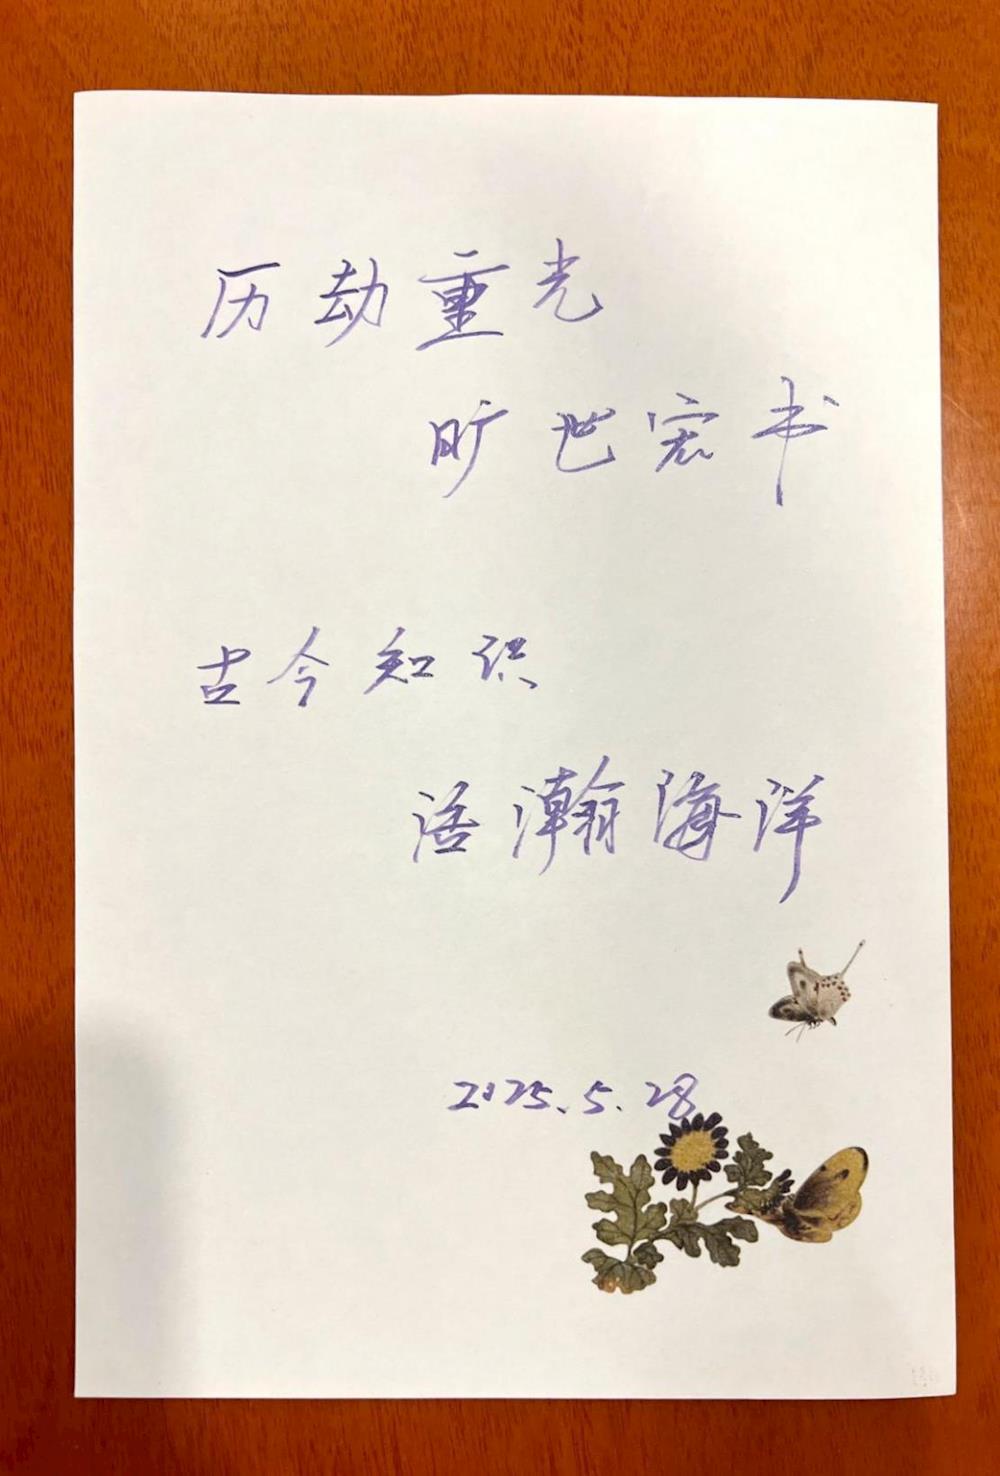 历劫重光
旷世宏书
古今知识
浩瀚海洋
2025.5.28